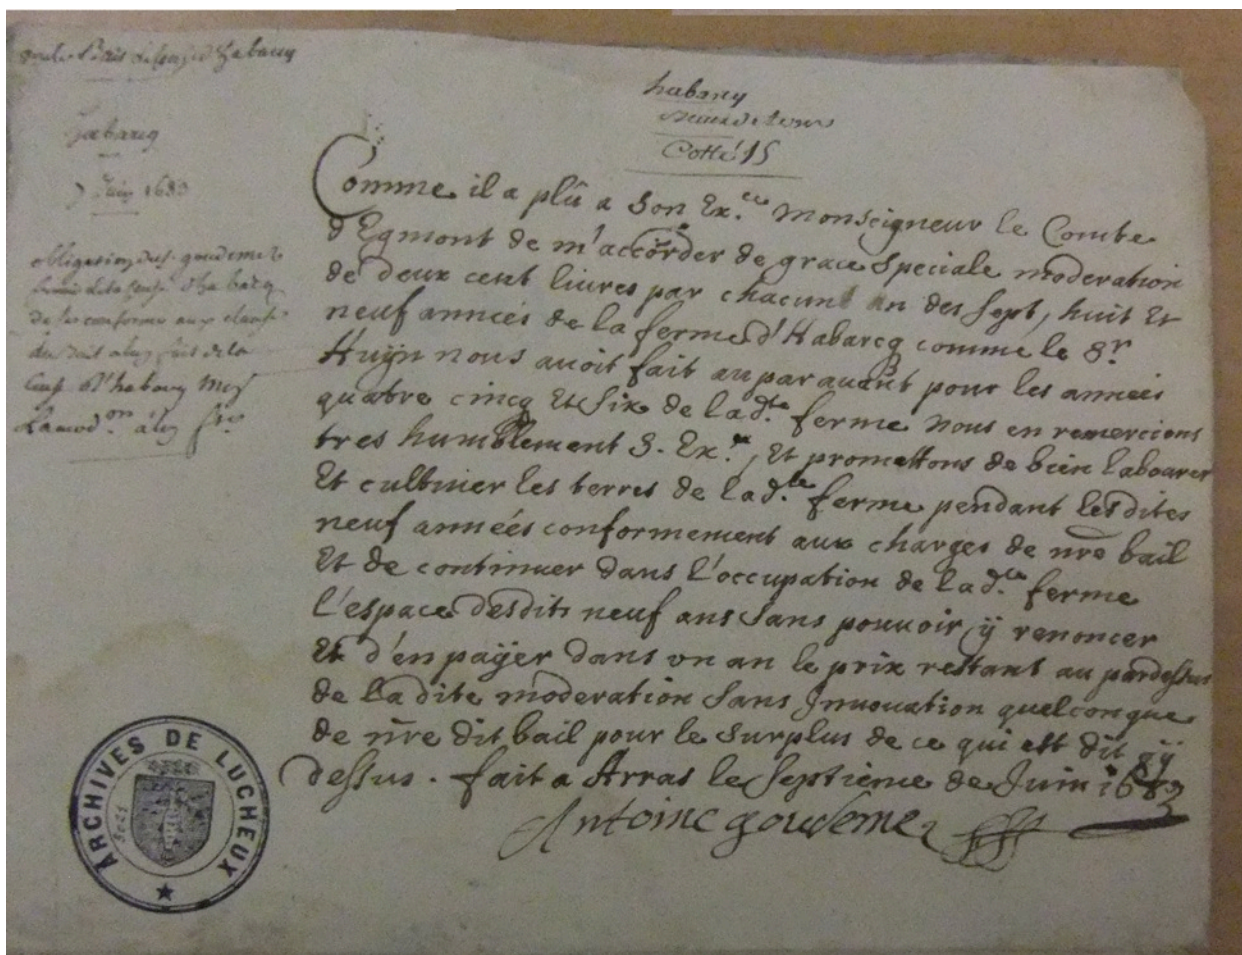 habarcq
Cotté 15
Habarcq
7 Juin 1683
obligation du Sr goudemez
de se conformer aux clauses
du bail a luy fait de la
Comme il a plû a Son Ex.ce Monseigneur le Comte
d'Egmont de m'accorder de grace speciale moderation
de deux cent livres par chacun an des sept, huit Et
neuf années de la ferme d'Habarcq comme le Sr
Huÿn nous auoit fait auparauant pour les années
quatre cincq Et Six de lad.te ferme nous en remercions
tres humblement S. Ex.ce, Et promettons de bien labourer
Et cultiuer les terres de lad.te ferme pendant lesdites
neuf années conformement aux charges de nre bail
Et de continuer dans l'occupation de lad.te ferme
l'espace desdits neuf ans sans pouuoir ÿ renoncer
Et d'en paÿer dans vn an le prix restant au pardessus
de la dite moderation sans Innouation quelconque
de nre dit bail pour le surplus de ce qui est dit cÿ
dessus. fait a Arras le Septiéme de Juin 1683
Antoine goudemez
ARCHIVES DE LUCHEUX